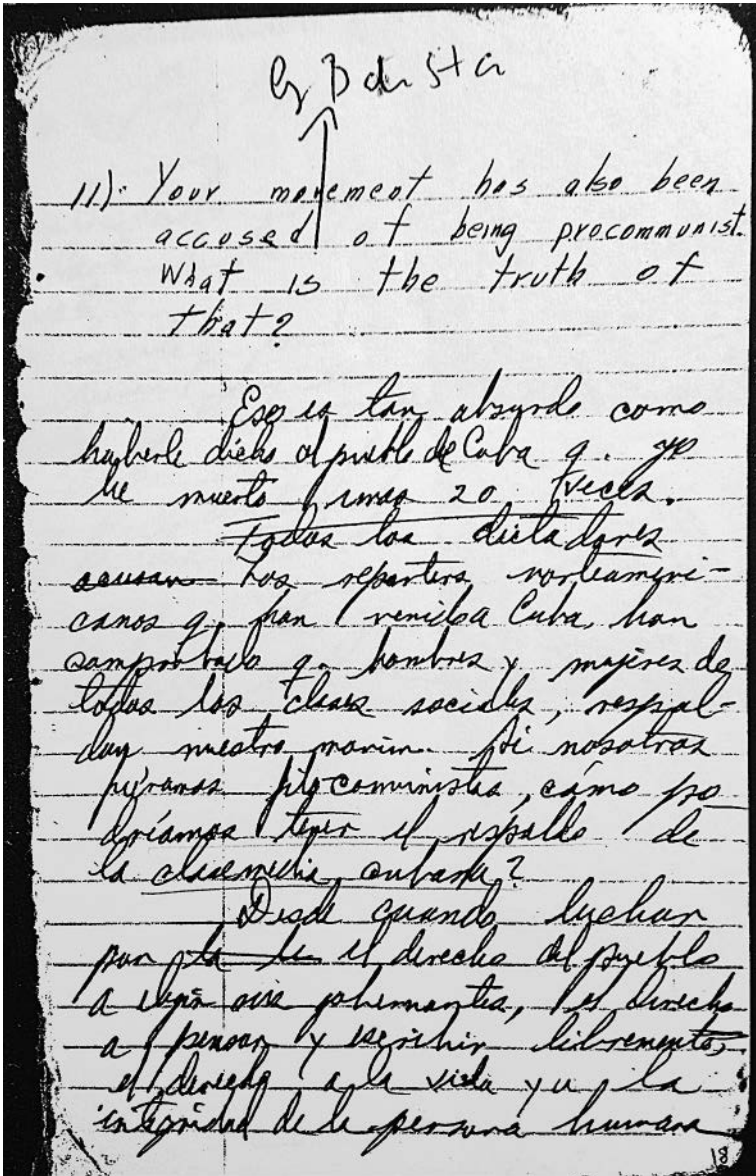 By Batista
11). Your movement has also been
accused of being procommunist.
What is the truth of
that?
Eso es tan absurdo como
haberle dicho al pueblo de Cuba q. yo
he muerto unas 20 veces.
Todos los dictadores
acusan Los reporters norteameri-
canos q. han venido a Cuba, han
comprobado q. hombres y mujeres de
todas las clases sociales, respal-
dan nuestro movim. Si nosotros
fuéramos filocomunistas, cómo po
dríamos tener el respaldo de
la clase media cubana?
Desde cuando luchar
por la el derecho del pueblo
a elegir sus gobernantes, el derecho
a pensar y escribir libremente,
el derecho a la vida y a la
integridad de la persona humana
18